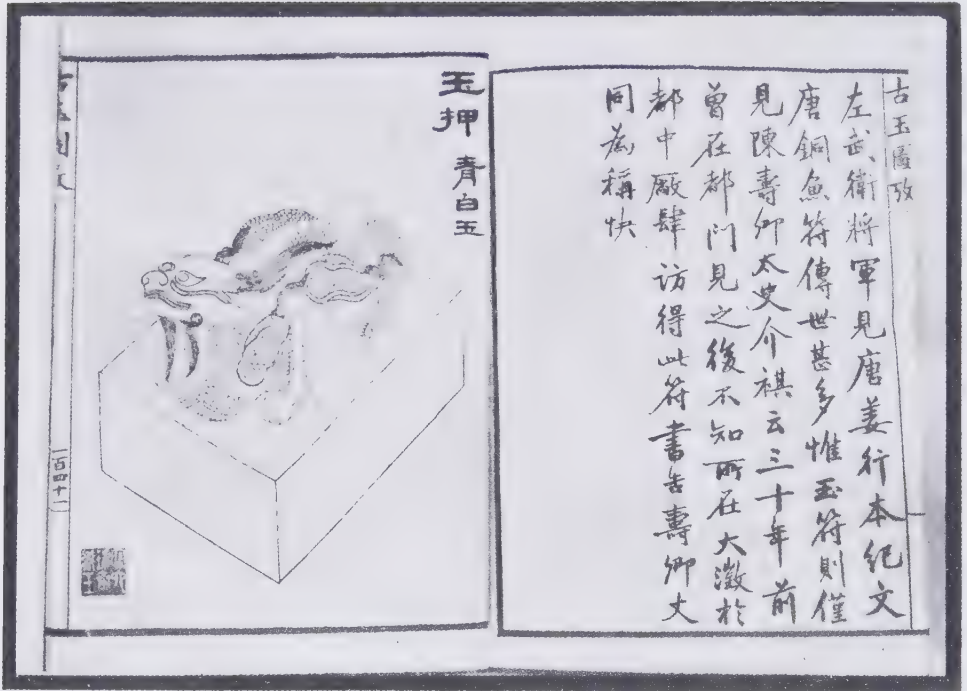 古玉圖攷
左武衛將軍見唐姜行本紀文
唐銅魚符傳世甚多惟玉符則僅
見陳壽卿太史介祺云三十年前
曾在都門見之後不知所在大澂於
都中廠肆訪得此符書告壽卿丈
同為稱快
玉押 青白玉
古玉圖攷
一百四十一